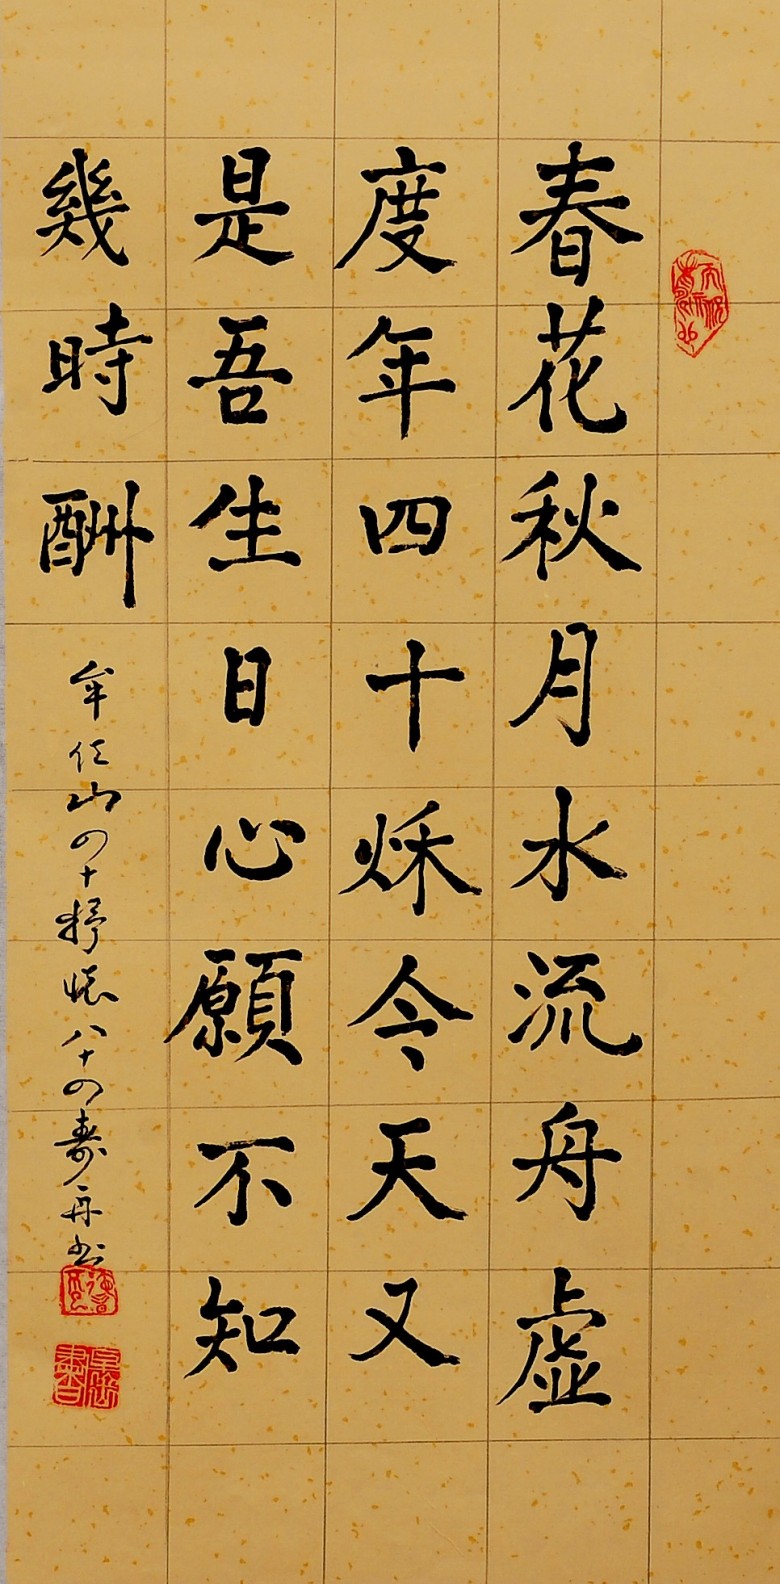 春花秋月水流舟虛
度年四十烁今天又
是吾生日心願不知
幾時酬
牟任山四十抒懷八十四壽舟书